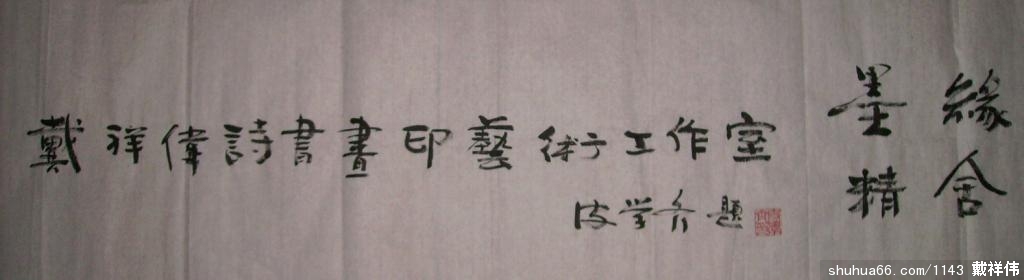 戴祥偉詩書畫印藝術工作室
墨緣
精舍
学 題
shuhua66.com/1143 戴祥伟